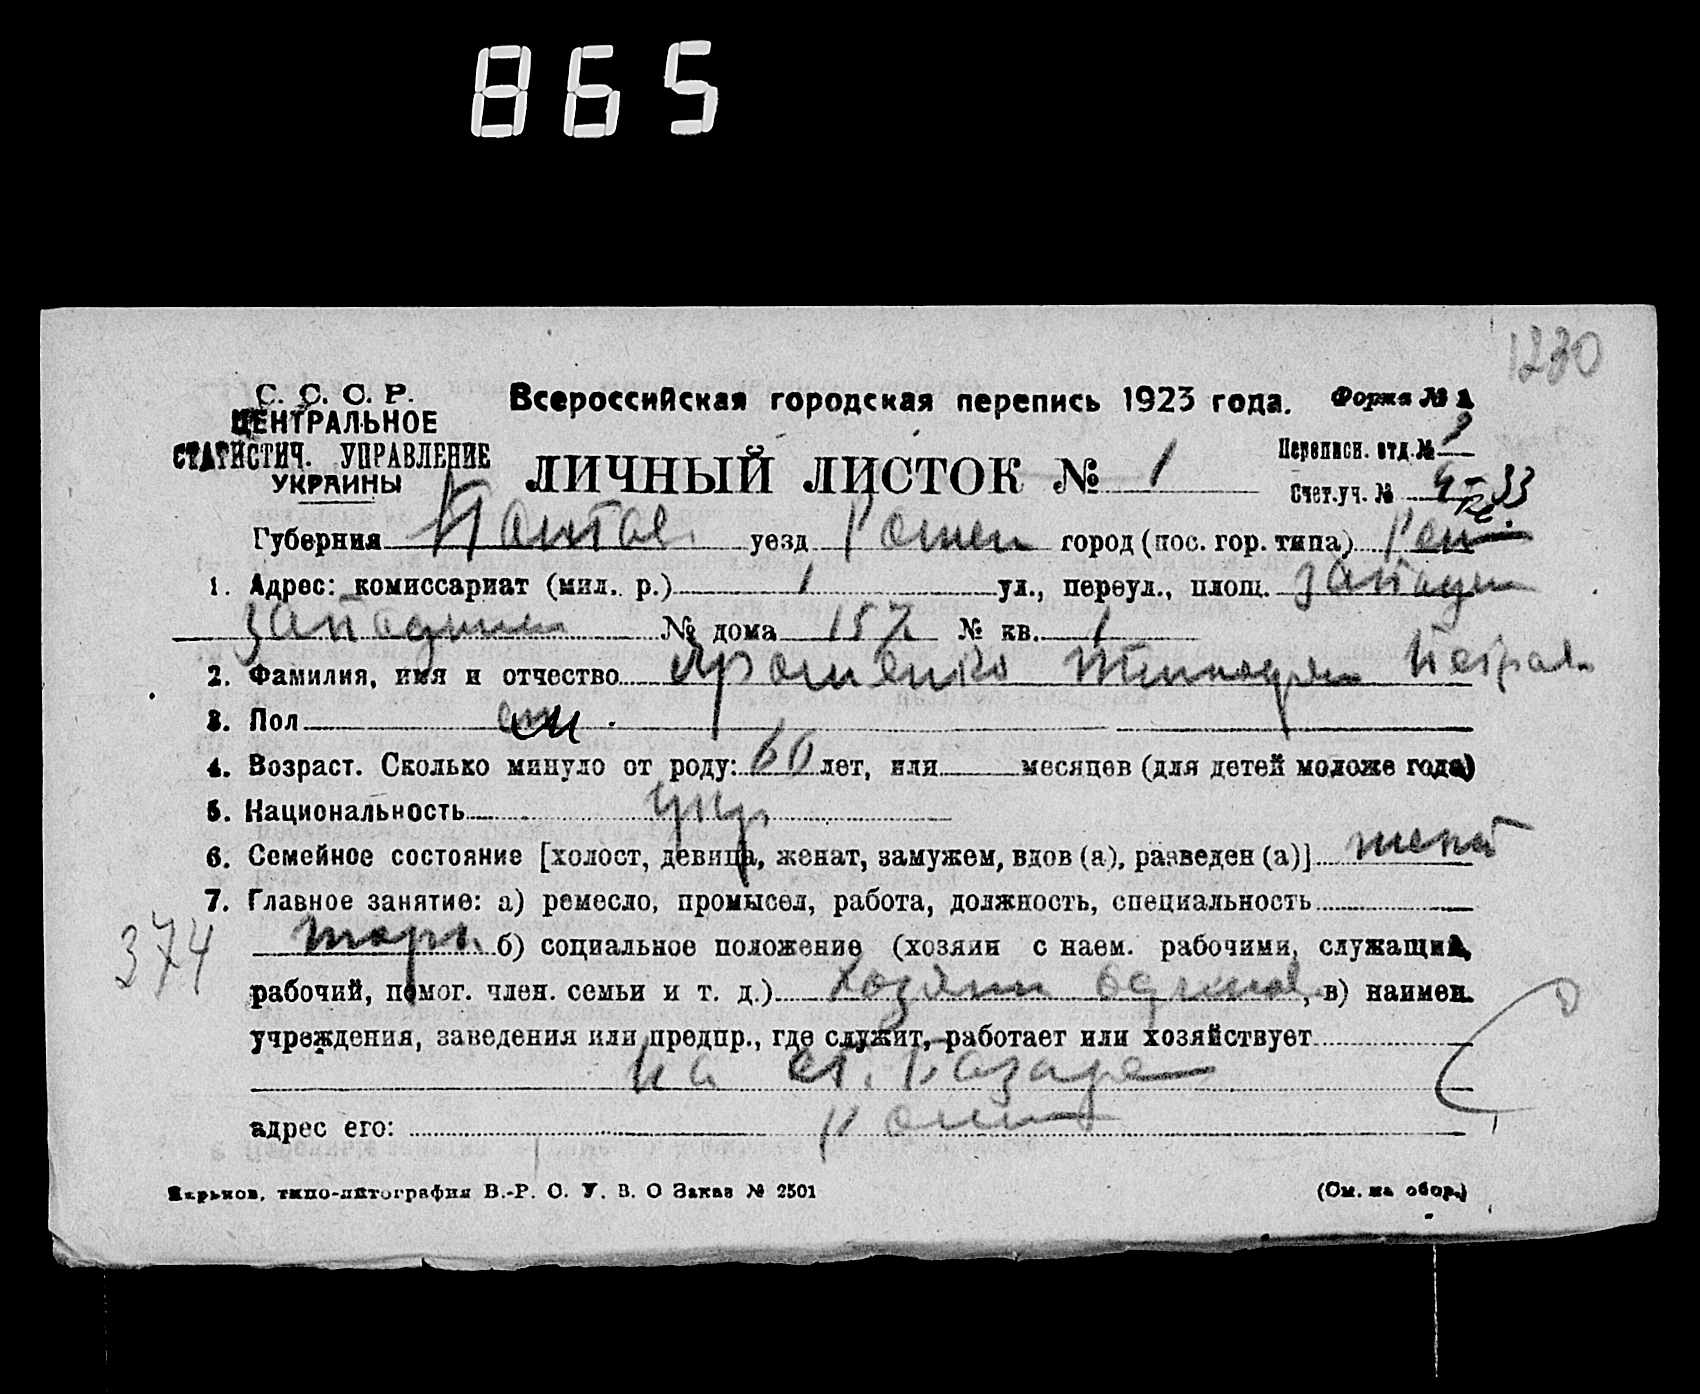 865
1230
С. С. С. Р.
ЦЕНТРАЛЬНОЕ
СТАТИСТИЧ. УПРАВЛЕНИЕ
УКРАИНЫ
Всероссийская городская перепись 1923 года.
Форма № 1
ЛИЧНЫЙ ЛИСТОК № 1
Переписн. отд. №
Счет. уч. № 33
Губерния Полтав. уезд Ромен город (пос. гор. типа) Ром
1. Адрес: комиссариат (мил. р.) 1 ул., переул., площ.
№ дома 157 № кв. 1
2. Фамилия, имя и отчество
3. Пол м
4. Возраст. Сколько минуло от роду: 60 лет, или месяцев (для детей моложе года)
5. Национальность укр
6. Семейное состояние [холост, девица, женат, замужем, вдов (а), разведен (а)] женат
7. Главное занятие: а) ремесло, промысел, работа, должность, специальность
374
торг. б) социальное положение (хозяин с наем. рабочими, служащий,
рабочий, помог. член. семьи и т. д.) хозяин одиноч, в) наимен.
учреждения, заведения или предпр., где служит, работает или хозяйствует
на ст. базаре
адрес его: Ромны
Харьков, типо-литография В.-Р. С. У. В. О Заказ № 2501
(См. на обор.)